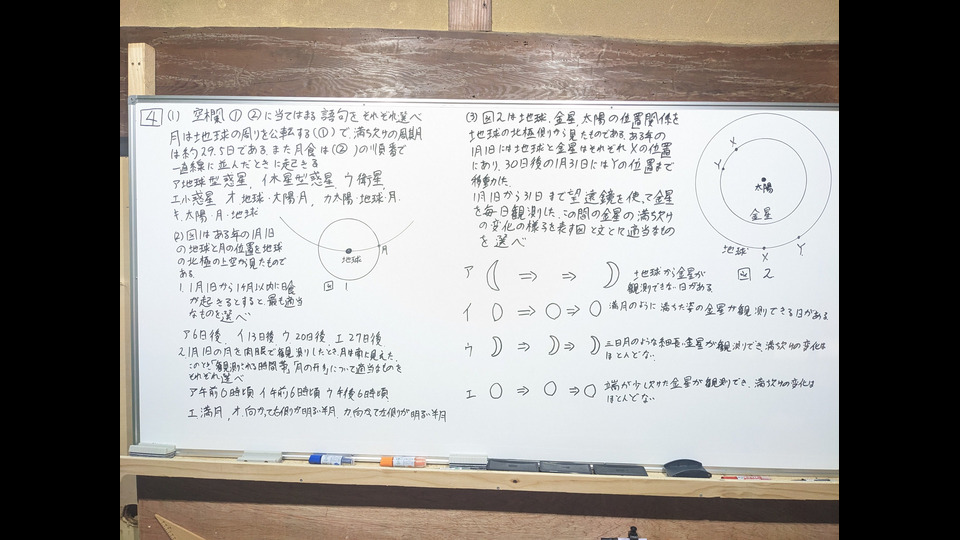 4 (1) 空欄①②に当てはまる語句をそれぞれ選べ
月は地球の周りを公転する(①)で、満ち欠けの周期
は約29.5日である。また月食は(②)の順番で
一直線に並んだときに起きる
ア地球型惑星、イ木星型惑星、ウ衛星、
エ小惑星 オ地球・太陽・月、カ太陽・地球・月、
キ太陽・月・地球
(2) 図1はある年の1月1日
の地球と月の位置を地球
の北極の上空から見たもので
ある。
1. 1月1日から1ヶ月以内に日食
が起きるとすると、最も適当
なものを選べ
ア6日後、イ13日後 ウ20日後、エ27日後
2. 1月1日の月を肉眼で観測したとき、月は南に見えた。
このとき「観測される時間帯」「月の形」について適当なものを
それぞれ選べ
ア午前0時頃 イ午前6時頃 ウ午後6時頃
エ満月、オ.向かって右側が明るい半月 カ.向かって左側が明るい半月
地球
月
図1
(3) 図2は地球、金星、太陽の位置関係を
地球の北極側から見たものである。ある年の
1月1日には地球と金星はそれぞれXの位置
にあり、30日後の1月31日にはYの位置まで
移動した。
1月1日から31日まで望遠鏡を使って金星
を毎日観測した。この間の金星の満ち欠け
の変化の様子を表す図と文として適当なもの
を選べ
X
Y
太陽
金星
地球
X
Y
図2
ア ⇒ ⇒ 地球から金星が
観測できない日がある
イ ⇒ ⇒ 満月のように満ちた姿の金星が観測できる日がある
ウ ⇒ ⇒ 三日月のような細長い金星が観測でき満ち欠けの変化は
ほとんどない。
エ ⇒ ⇒ 端が少し欠けた金星が観測でき、満ち欠けの変化は
ほとんどない